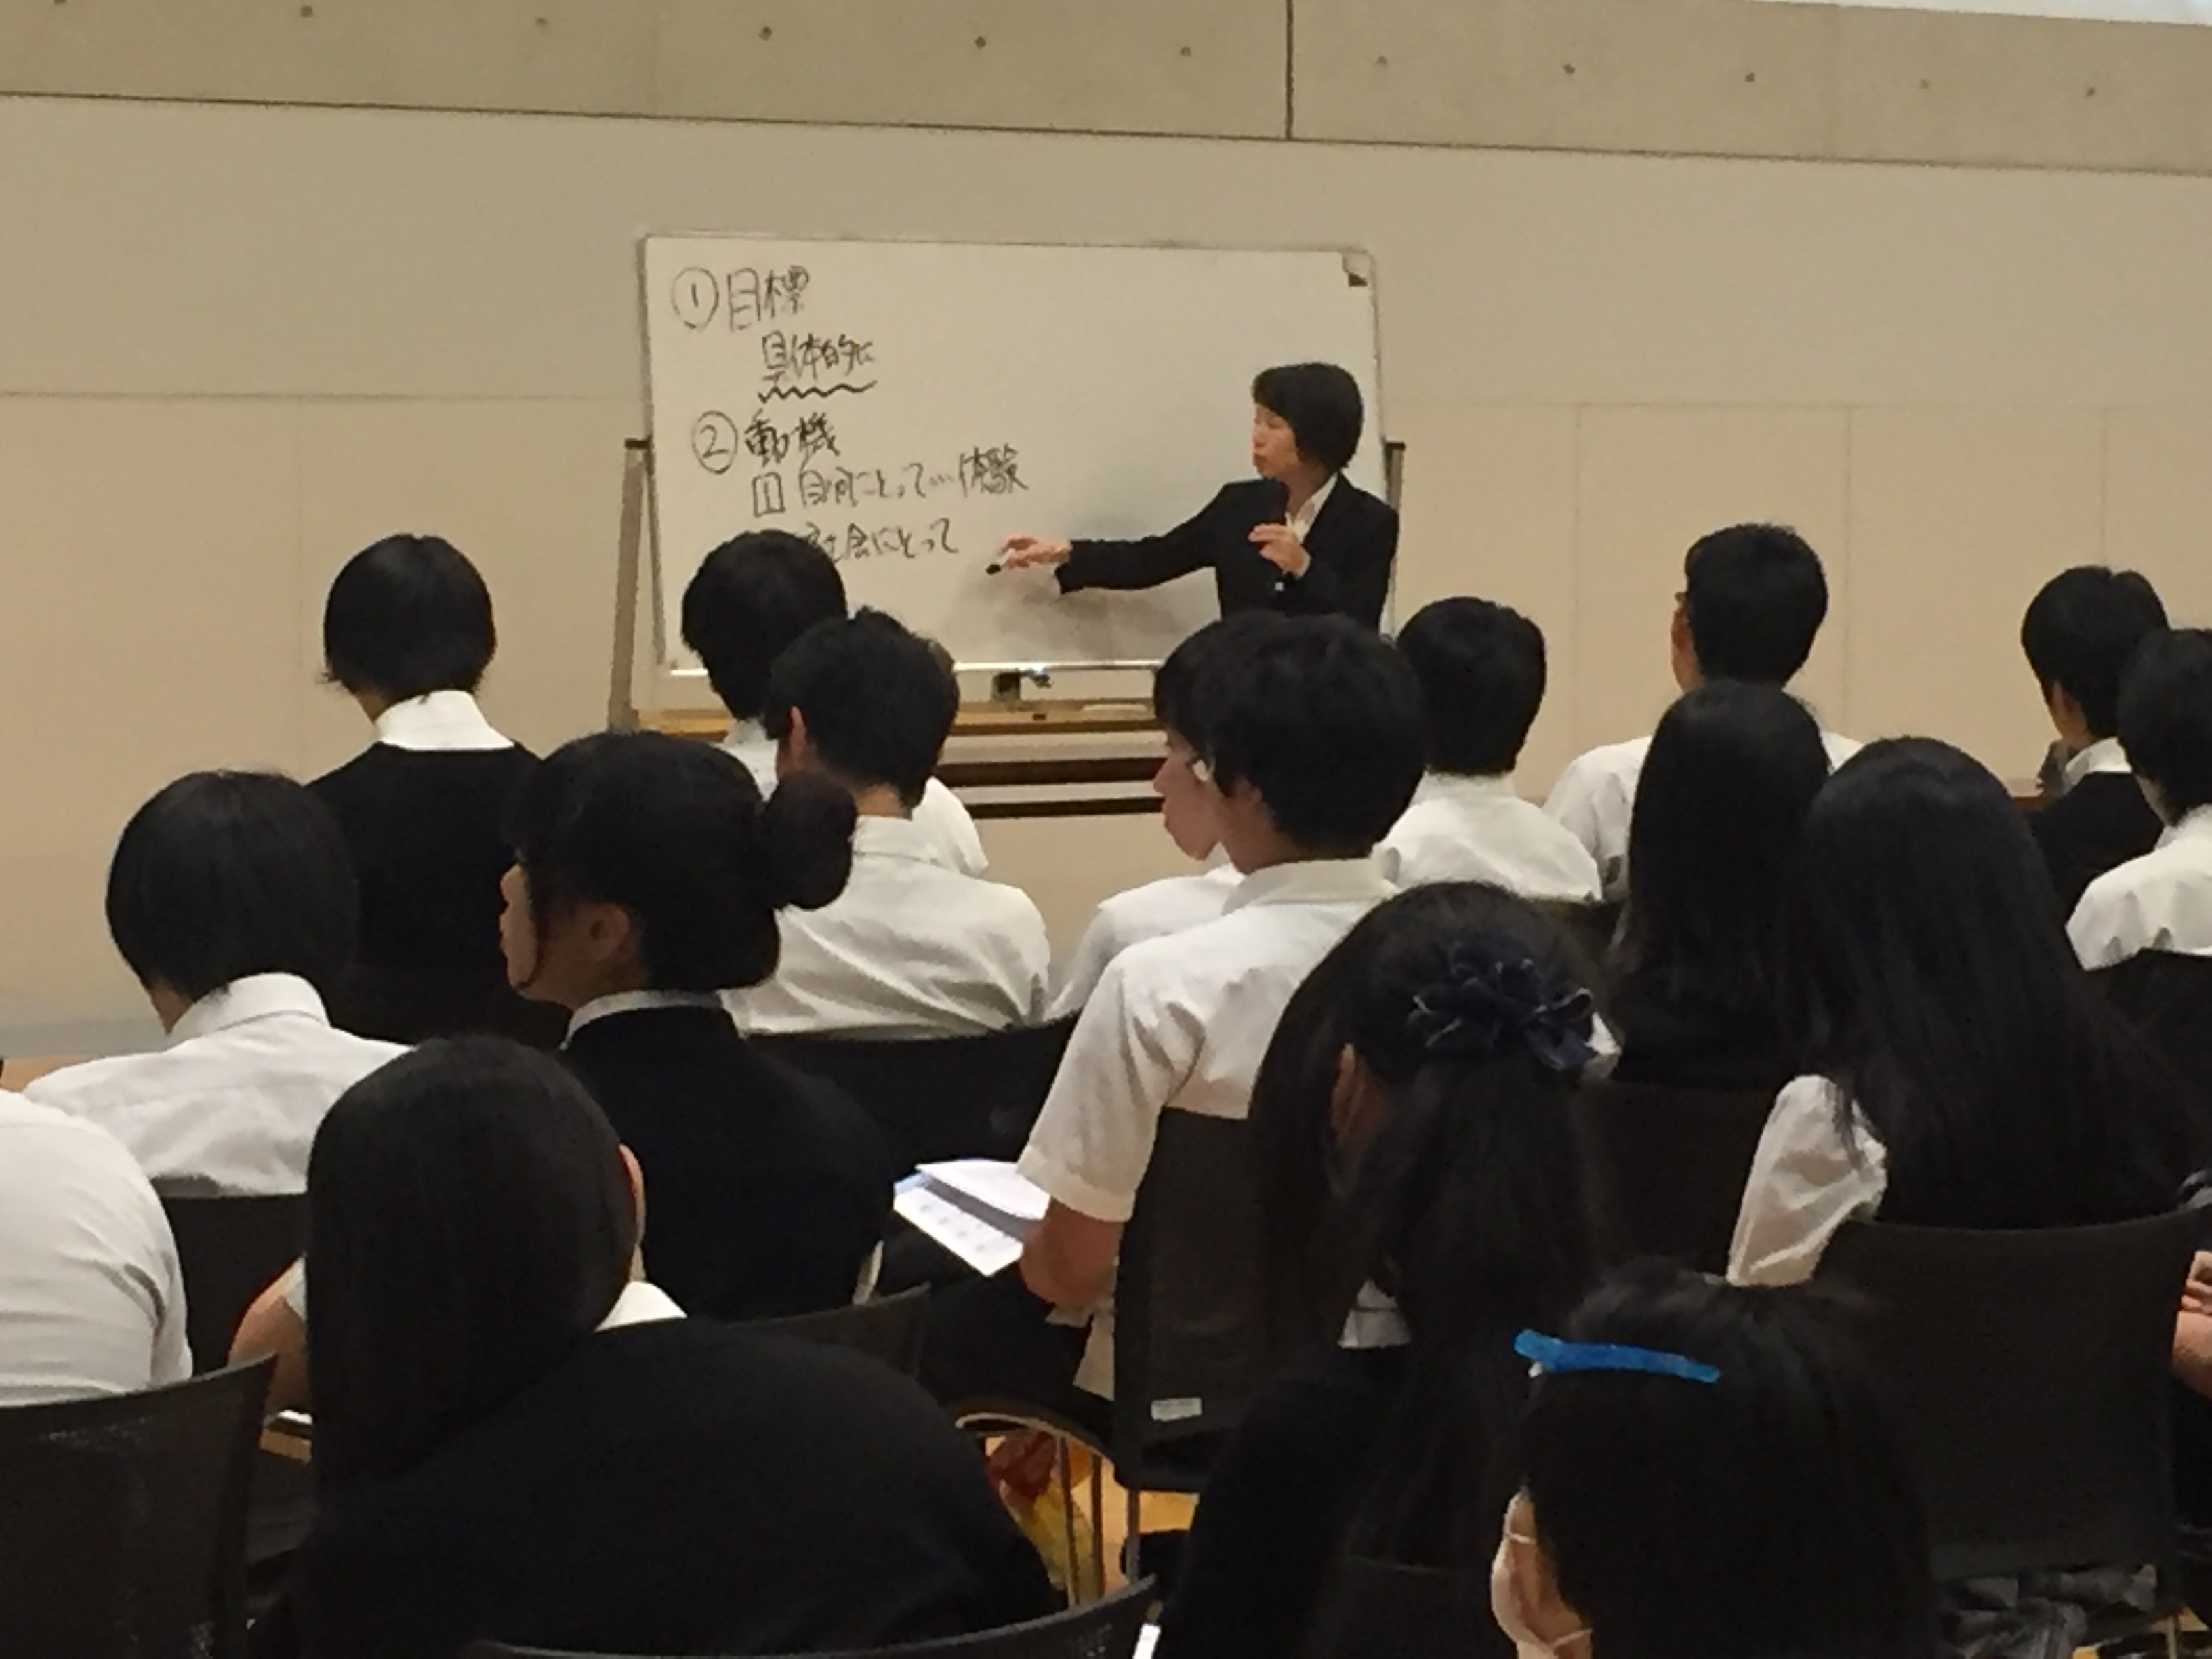 ① 目標
具体的に
② 動機
1 自分にとって…体験
社会にとって